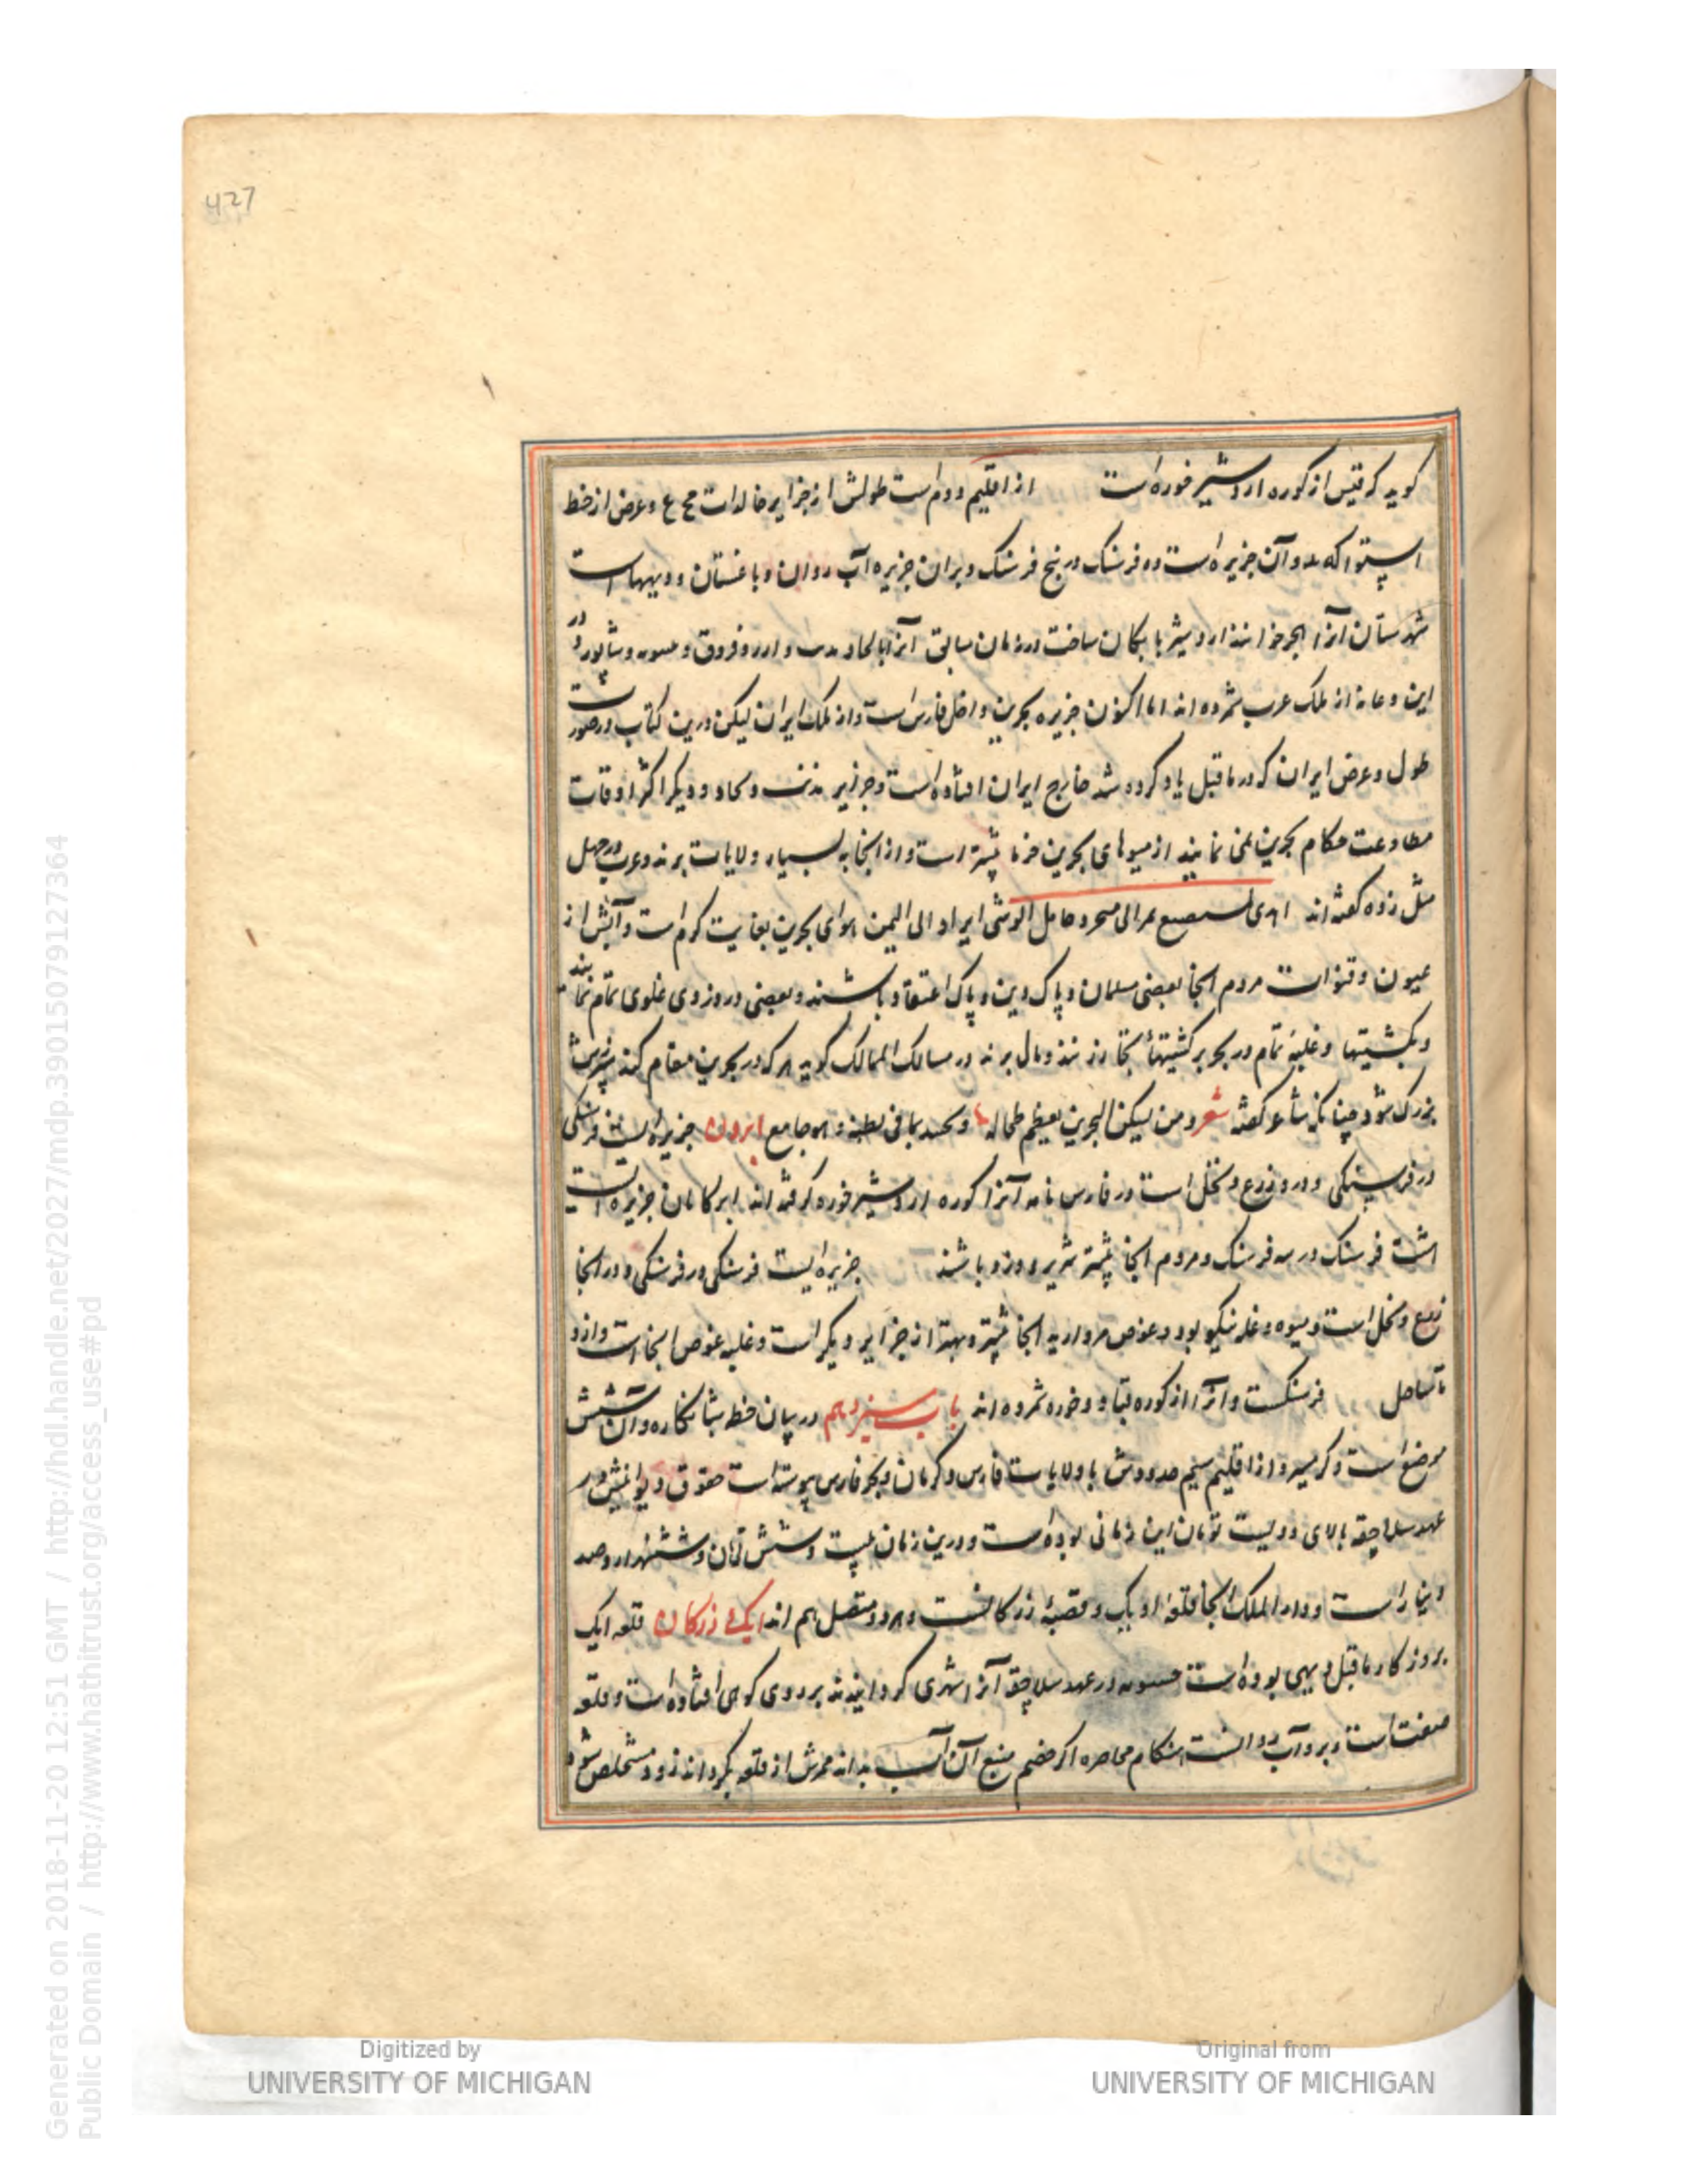 427
گوید که قیس از کوره اردشیر خوره است از اقلیم دوم است طولش از جزایر خالدات مح ع و عرض از خط
استوا که مد و آن جزیره است ده فرسنک در پنج فرسنک و بران جزیره آب روان و باغستان و دیهها است
شهرستان آنرا اردشیر بابکان ساخت در زمان سابق آنرا با لحا و و دارد و فروق و و شابور در
این و عانه از ملک عرب شمرده اند اما اکنون جزیره بحرین داخل فارس است و از ملک ایران لیکن درین کتاب در صورت
طول و عرض ایران که در ماقبل یاد کرده شد خارج ایران افتاده است و جزایر و دیکر اکثر اوقات
مطاوعت حکام بحرین نمی نمایند از میوهای بحرین خرما بیشتر است و از آنجا به بسیار ولایات برند و عرب در جهل
مثل زده گفته اند الی الیمن هوای بحرین بغایت گرم است و آبش از
عیون و قنوات مردم آنجا بعضی مسلمان و پاک دین و پاک اعتقاد باشند و بعضی در دزدی غلوی تمام نمایند
و بکشتیها و غلبهٔ تمام در بحر بر کشتیهاء تجار زنند و مال برند در مسالک الممالک گوید هر که در بحرین مقام کند سپرزش
بزرک شود چنانکه شاعر گفته شعر و من یسکن البحرین یعظم طحاله و یحسد بما فی بطنه و هو جامع ابرون جزیره ایست فرسنکی
در فرسنکی و درو زرع و نخل است در فارس نامه آنرا کوره اردشیر خوره گرفته اند ابرکامان جزیره است
هشت فرسنک در سه فرسنک و مردم آنجا بیشتر شریر و دزد باشند جزیره ایست فرسنکی در فرسنکی و در آنجا
زرع و نخل است و میوه و غله نیکو بود و غوص مروارید آنجا بیشتر و بهتر از جزایر دیکر است و غلبه غوص آنجا است و ازو
تا ساحل فرسنکست و آنرا از کوره قباد خوره شمرده اند باب سیزدهم در بیان خطه شبانکاره و آن شش
موضع است و گرمسیر و از اقلیم سیم حدودش با ولایات فارس و کرمان و بحر فارس پیوسته است حقوق دیوانیش در
عهد سلاجقه بالای دویست تومان این زمانی بوده است و درین زمان بیست و شش تومان و ششهزار و صد
دینار است و دار الملک آنجا قلعهٔ و قصبهٔ زرکانست و هر دو متصل هم اند ایک زرکان قلعه ایک
بروزکار ماقبل دیهی بوده است در عهد سلاجقه آنرا شهری گردانیدند بر روی کوهی افتاده است و قلعه
صفت است و برو آب روانست هنکام محاصره اگر خصم منبع آن آب بداند ممرش از قلعه بگرداند زود مستخلص شود
Generated on 2018-11-20 12:51 GMT / http://hdl.handle.net/2027/mdp.39015079127364
Public Domain / http://www.hathitrust.org/access_use#pd
Digitized by
UNIVERSITY OF MICHIGAN
Original from
UNIVERSITY OF MICHIGAN